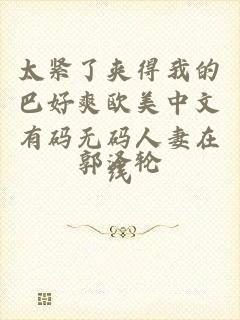 太紧了夹得我的
巴好爽欧美中文
有码无码人妻在
线
郭泽轮